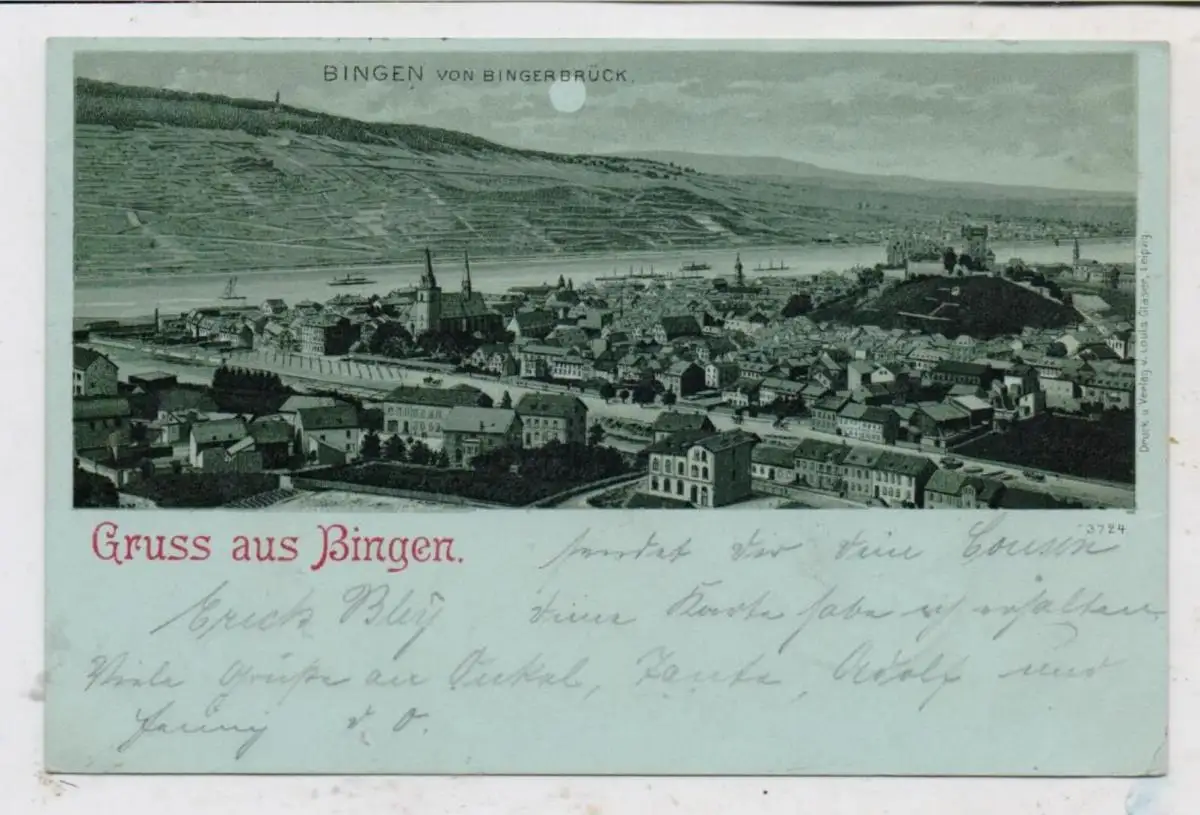 BINGEN VON BINGERBRÜCK.
Druck u. Verlag v. Louis Glaser, Leipzig.
3724
Gruss aus Bingen.
sendet dir dein Cousin
Erich Bley deine Karte habe ich erhalten
Viele Grüße an Onkel, Tante, Adolf und
Fanny d. O.